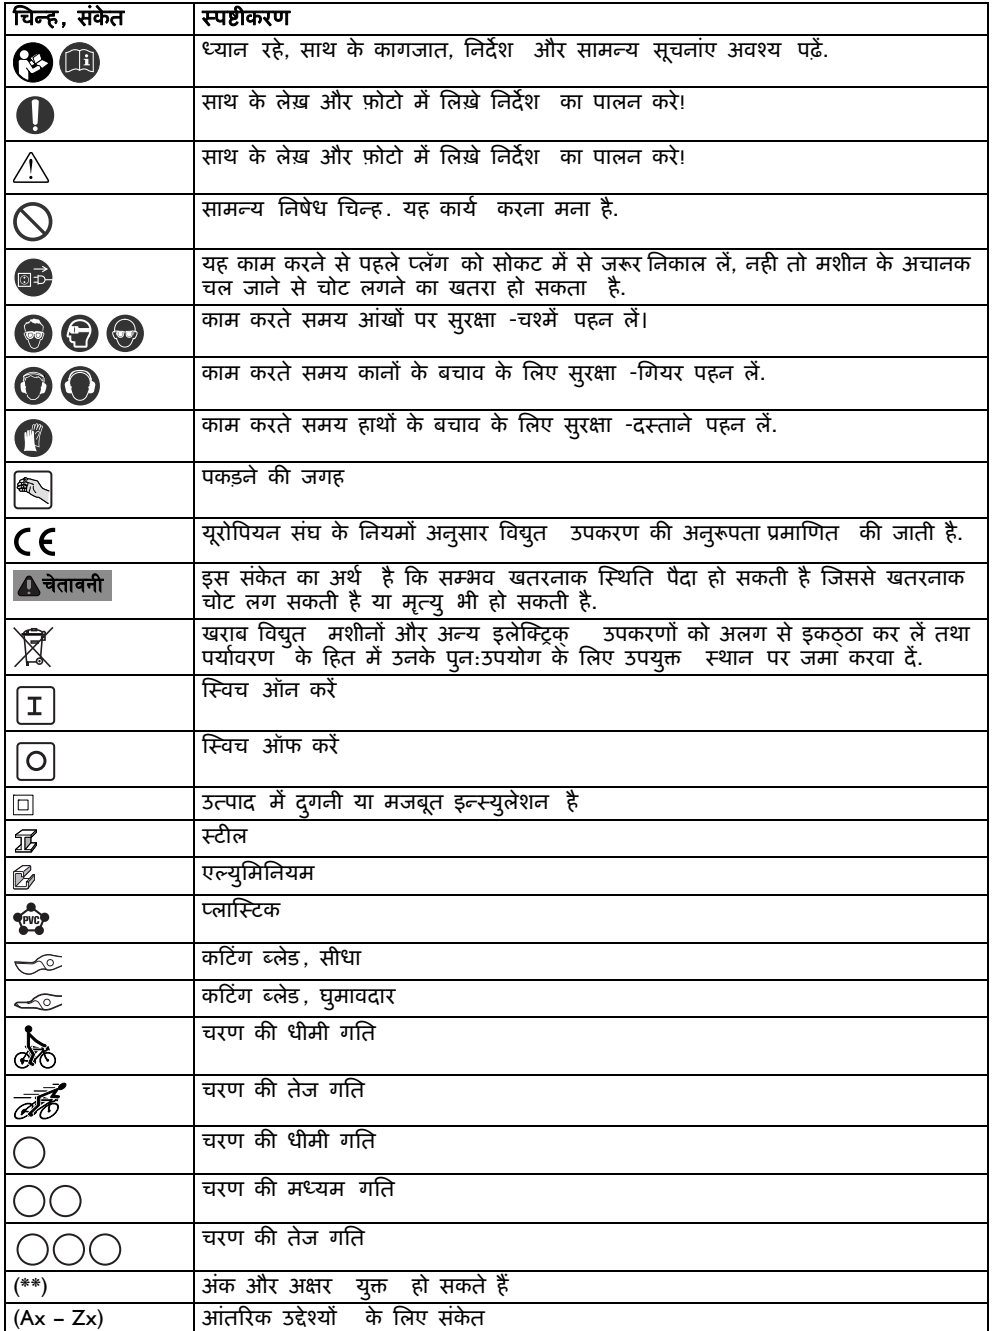 चिन्ह, संकेत स्पष्टीकरण
ध्यान रहे, साथ के कागजात, निर्देश और सामन्य सूचनांए अवश्य पढ़ें.
साथ के लेख़ और फ़ोटो में लिख़े निर्देश का पालन करे!
साथ के लेख़ और फ़ोटो में लिख़े निर्देश का पालन करे!
सामन्य निषेध चिन्ह. यह कार्य करना मना है.
यह काम करने से पहले प्लॅग को सोकट में से जरूर निकाल लें, नही तो मशीन के अचानक
चल जाने से चोट लगने का खतरा हो सकता है.
काम करते समय आंखों पर सुरक्षा -चश्में पहन लें।
काम करते समय कानों के बचाव के लिए सुरक्षा -गियर पहन लें.
काम करते समय हाथों के बचाव के लिए सुरक्षा -दस्ताने पहन लें.
पकड़ने की जगह
CE यूरोपियन संघ के नियमों अनुसार विद्युत उपकरण की अनुरूपता प्रमाणित की जाती है.
चेतावनी इस संकेत का अर्थ है कि सम्भव खतरनाक स्थिति पैदा हो सकती है जिससे खतरनाक
चोट लग सकती है या मृत्यु भी हो सकती है.
खराब विद्युत मशीनों और अन्य इलेक्ट्रिक् उपकरणों को अलग से इकठ्ठा कर लें तथा
पर्यावरण के हित में उनके पुन:उपयोग के लिए उपयुक्त स्थान पर जमा करवा दें.
I स्विच ऑन करें
O स्विच ऑफ करें
उत्पाद में दुगनी या मजबूत इन्स्युलेशन है
स्टील
एल्युमिनियम
PVC प्लास्टिक
कटिंग ब्लेड, सीधा
कटिंग ब्लेड, घुमावदार
चरण की धीमी गति
चरण की तेज गति
चरण की धीमी गति
चरण की मध्यम गति
चरण की तेज गति
(**) अंक और अक्षर युक्त हो सकते हैं
(Ax – Zx) आंतरिक उद्देश्यों के लिए संकेत